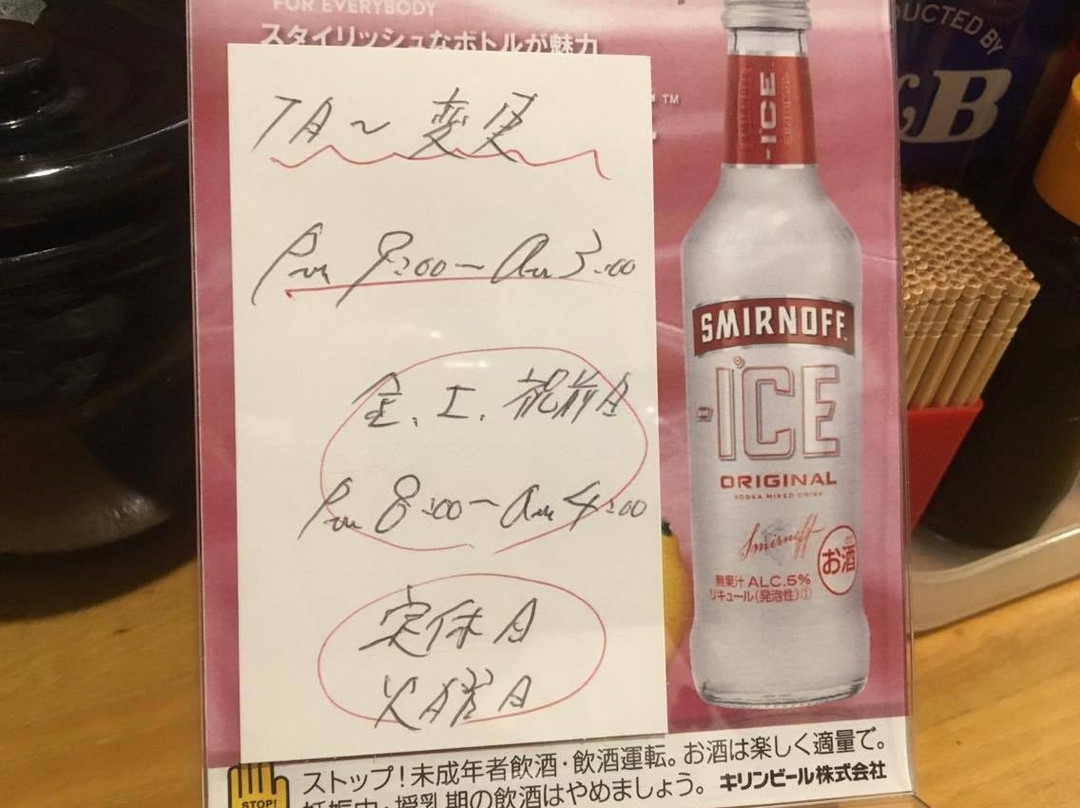 FOR EVERYBODY
スタイリッシュなボトルが魅力
7月〜変更
Pm 9:00〜am 3:00
金、土、祝前日
Pm 8:00〜am 4:00
定休日
火曜日
TM
ICE
SMIRNOFF
ICE
ORIGINAL
VODKA MIXED DRINK
Smirnoff
お酒
無果汁 ALC.5%
リキュール(発泡性)①
DUCTED BY
&B
STOP!
ストップ！未成年者飲酒・飲酒運転。お酒は楽しく適量で。
妊娠中・授乳期の飲酒はやめましょう。 キリンビール株式会社